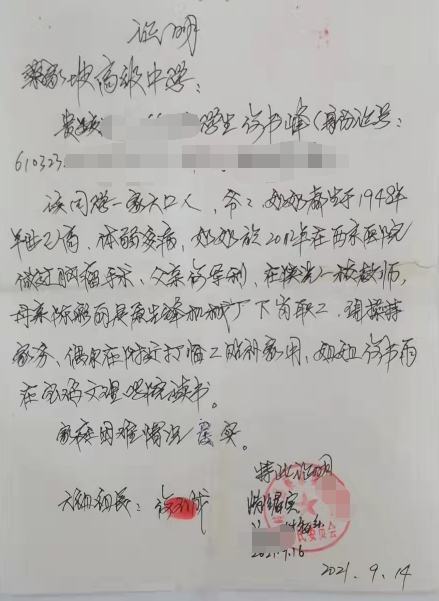 证明
梁家坡高级中学：
贵校 学生徐书峰（身份证号：
610323
该同学一家六口人，爷爷、奶奶都生于1948年
年世已高，体弱多病，奶奶于2012年在西京医院
做过脑瘤手术、父亲徐军利，在 教师，
母亲陈 是原先锋机械厂下岗职工，现操持
家务、偶尔在附近打临工贴补家用，姐姐徐书雨
在宝鸡文理学院读书。
家庭困难情况属实。
特此证明
六组组长：徐
情况属实
民委员会
2021.9.16
2021.9.14